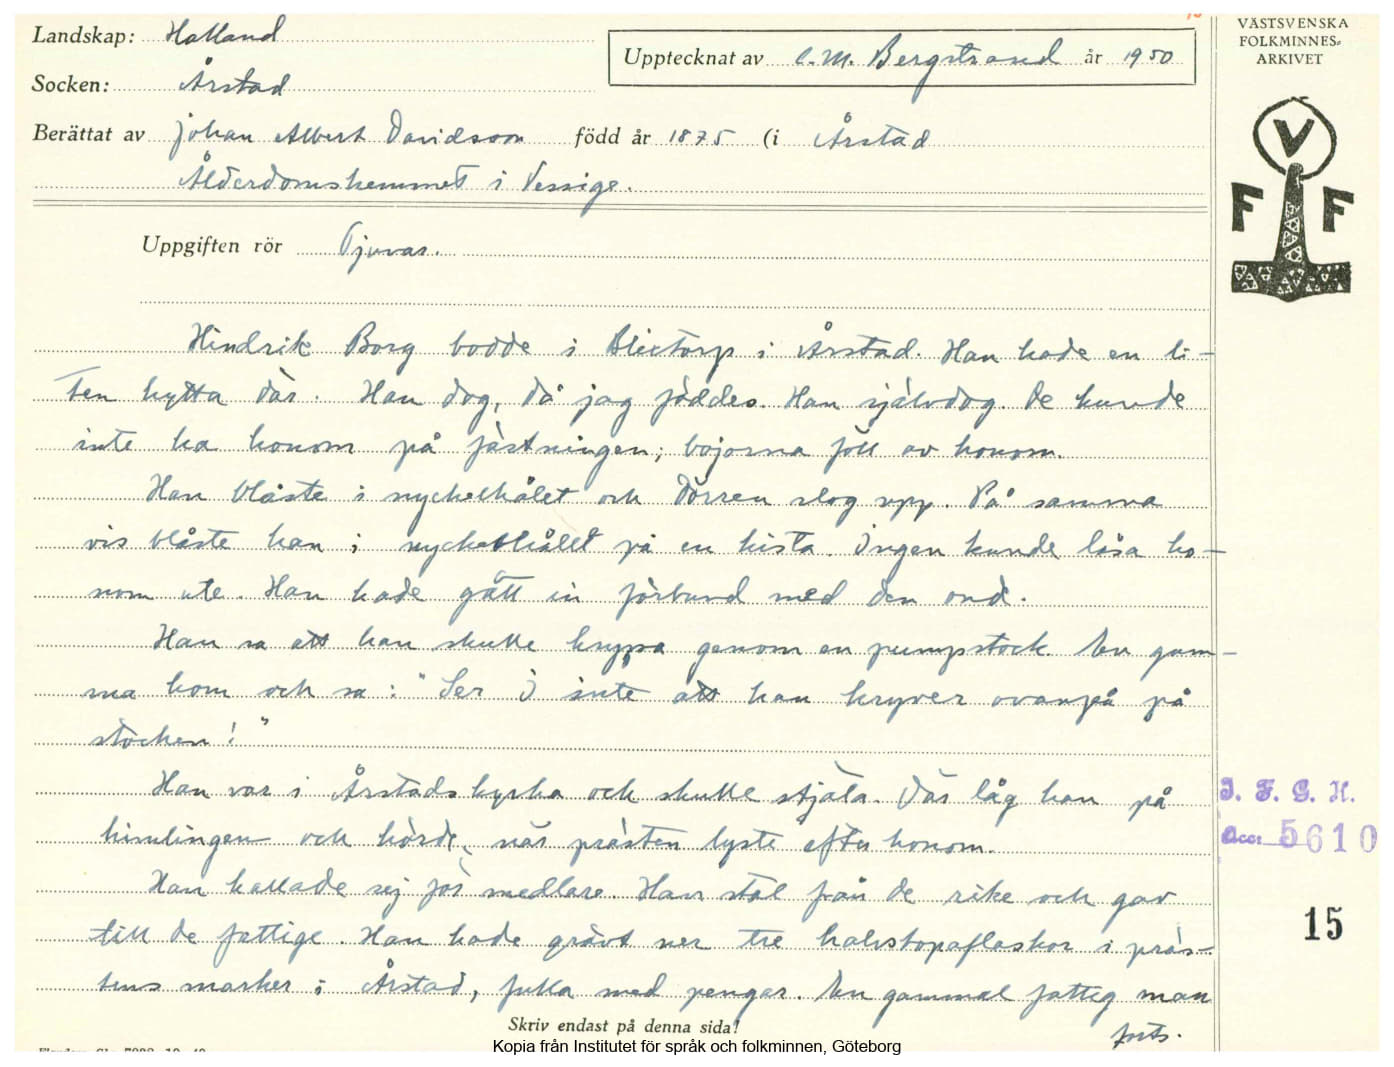 Landskap: Halland
Upptecknat av C. M. Bergstrand år 1950
VÄSTSVENSKA
FOLKMINNES-
ARKIVET
Socken: Årstad
Berättat av Johan Albert Davidsson född år 1875 (i Årstad
Ålderdomshemmet i Vessige.
V
F F
Uppgiften rör Tjuvar.
Hindrik Borg bodde i Blixtorp i Årstad. Han hade en li-
ten hytta där. Han dog, då jag föddes. Han självdog. De kunde
inte ha honom på fästningen; bojorna föll av honom.
Han blåste i nyckelhålet och dörren slog upp. På samma
vis blåste han i nyckelhålet på en kista. Ingen kunde låsa ho-
nom ute. Han hade gått in förbund med den ond.
Han sa att han skulle krypa genom en pumpstock. En gum-
ma kom och sa: "Ser I inte att han kryver ovanpå på
stocken!"
Han var i Årstads kyrka och skulle stjäla. Där låg han på
himlingen och hörde, när prästen lyste efter honom.
Han kallade sej för medlare. Han stal från de rike och gav
till de fattige. Han hade grävt ner tre halvstopaflaskor i präs-
tens marker i Årstad, fulla med pengar. En gammal fattig man
forts.
I. F. G. H.
Acc: 5610
15
Skriv endast på denna sida!
Kopia från Institutet för språk och folkminnen, Göteborg